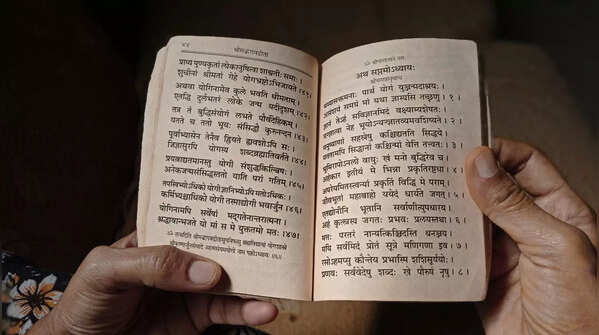 श्रीमद्भगवद्गीता
प्राप्य पुण्यकृतां लोकानुषित्वा शाश्वतीः समाः ।
शुचीनां श्रीमतां गेहे योगभ्रष्टोऽभिजायते ।४१।
अथवा योगिनामेव कुले भवति धीमताम्
एतद्धि दुर्लभतरं लोके जन्म यदीदृशम्
तत्र तं बुद्धिसंयोगं लभते पौर्वदेहिकम्
यतते च ततो भूयः संसिद्धौ कुरुनन्दन ।४३।
पूर्वाभ्यासेन तेनैव ह्रियते ह्यवशोऽपि सः
जिज्ञासुरपि योगस्य शब्दब्रह्मातिवर्तते ।४४।
प्रयत्नाद्यतमानस्तु योगी संशुद्धकिल्बिषः
अनेकजन्मसंसिद्धस्ततो याति परां गतिम् ।४५।
तपस्विभ्योऽधिको योगी ज्ञानिभ्योऽपि मतोऽधिकः
कर्मिभ्यश्चाधिको योगी तस्माद्योगी भवार्जुन ।४६।
योगिनामपि सर्वेषां मद्गतेनान्तरात्मना
श्रद्धावान्भजते यो मां स मे युक्ततमो मतः ।४७।
ॐ तत्सदिति श्रीमद्भगवद्गीतासूपनिषत्सु ब्रह्मविद्यायां योगशास्त्रे
श्रीकृष्णार्जुनसंवादे आत्मसंयमयोगो नाम षष्ठोऽध्यायः ॥६॥
ॐ श्रीपरमात्मने नमः
अथ सप्तमोऽध्यायः
श्रीभगवानुवाच
मय्यासक्तमनाः पार्थ योगं युञ्जन्मदाश्रयः
असंशयं समग्रं मां यथा ज्ञास्यसि तच्छृणु । १ ।
ज्ञानं तेऽहं सविज्ञानमिदं वक्ष्याम्यशेषतः
यज्ज्ञात्वा नेह भूयोऽन्यज्ज्ञातव्यमवशिष्यते । २ ।
मनुष्याणां सहस्रेषु कश्चिद्यतति सिद्धये
यततामपि सिद्धानां कश्चिन्मां वेत्ति तत्त्वतः । ३ ।
भूमिरापोऽनलो वायुः खं मनो बुद्धिरेव च
अहंकार इतीयं मे भिन्ना प्रकृतिरष्टधा । ४ ।
अपरेयमितस्त्वन्यां प्रकृतिं विद्धि मे पराम्
जीवभूतां महाबाहो ययेदं धार्यते जगत् । ५ ।
एतद्योनीनि भूतानि सर्वाणीत्युपधारय
अहं कृत्स्नस्य जगतः प्रभवः प्रलयस्तथा । ६ ।
मत्तः परतरं नान्यत्किञ्चिदस्ति धनञ्जय
मयि सर्वमिदं प्रोतं सूत्रे मणिगणा इव । ७ ।
रसोऽहमप्सु कौन्तेय प्रभास्मि शशिसूर्ययोः
प्रणवः सर्ववेदेषु शब्दः खे पौरुषं नृषु । ८ ।